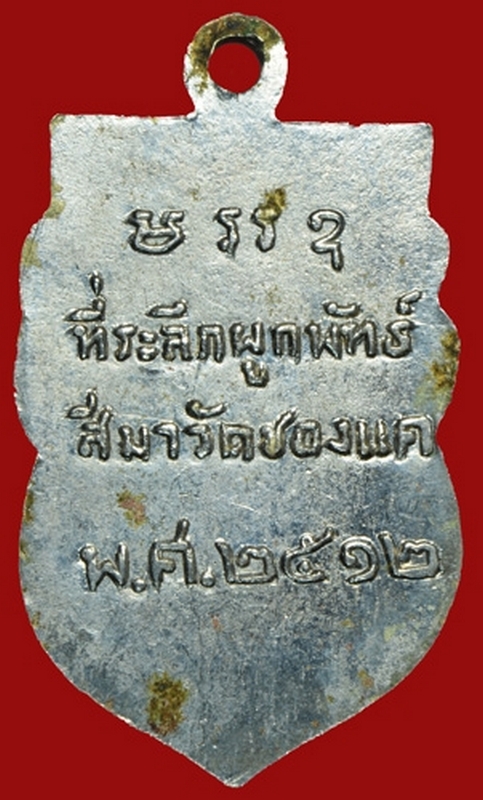 ที่ระลึกผูกพัทธ์
สีมาวัดช่องแค
พ.ศ.๒๕๑๒